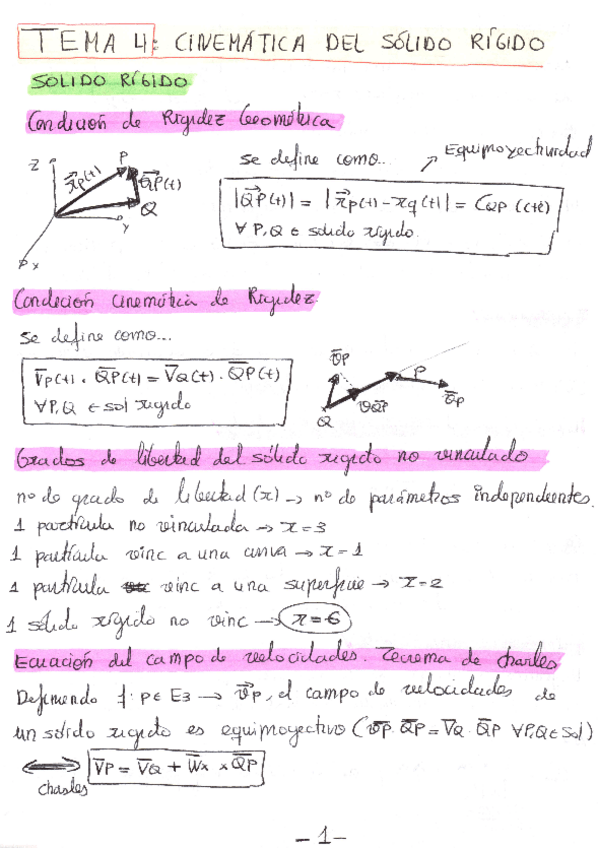 TEMA 4: CINEMÁTICA DEL SÓLIDO RÍGIDO
SOLIDO RÍGIDO
Condición de Rigidez Geométrica
Z P x⃗p(t) Q⃗P(t) Q Y X
se define como... → Equiproyectividad
|Q⃗P(t)| = |x⃗p(t) - xq(t)| = CQP (cte)
∀ P,Q ∈ solido rígido.
Condición cinemática de Rigidez.
se define como...
V̄p(t) · Q̄P(t) = V̄Q(t) · Q̄P(t)
∀P,Q ∈ sol rígido
Grados de libertad del sólido rígido no vinculado
nº de grado de libertad (x) → nº de parámetros independientes.
1 partícula no vinculada → x=3
1 partícula vinc a una curva → x=1
1 partícula vinc a una superficie → x=2
1 sólido rígido no vinc → x=6
Ecuación del campo de velocidades. Teorema de Charles
Definiendo f: P ∈ E3 → v⃗p, el campo de velocidades de
un sólido rígido es equiproyectivo (v̄p · Q̄P = V̄Q · Q̄P ∀P,Q ∈ Sol)
⟷ V̄P = V̄Q + W̄x × Q̄P
Chasles
-1-